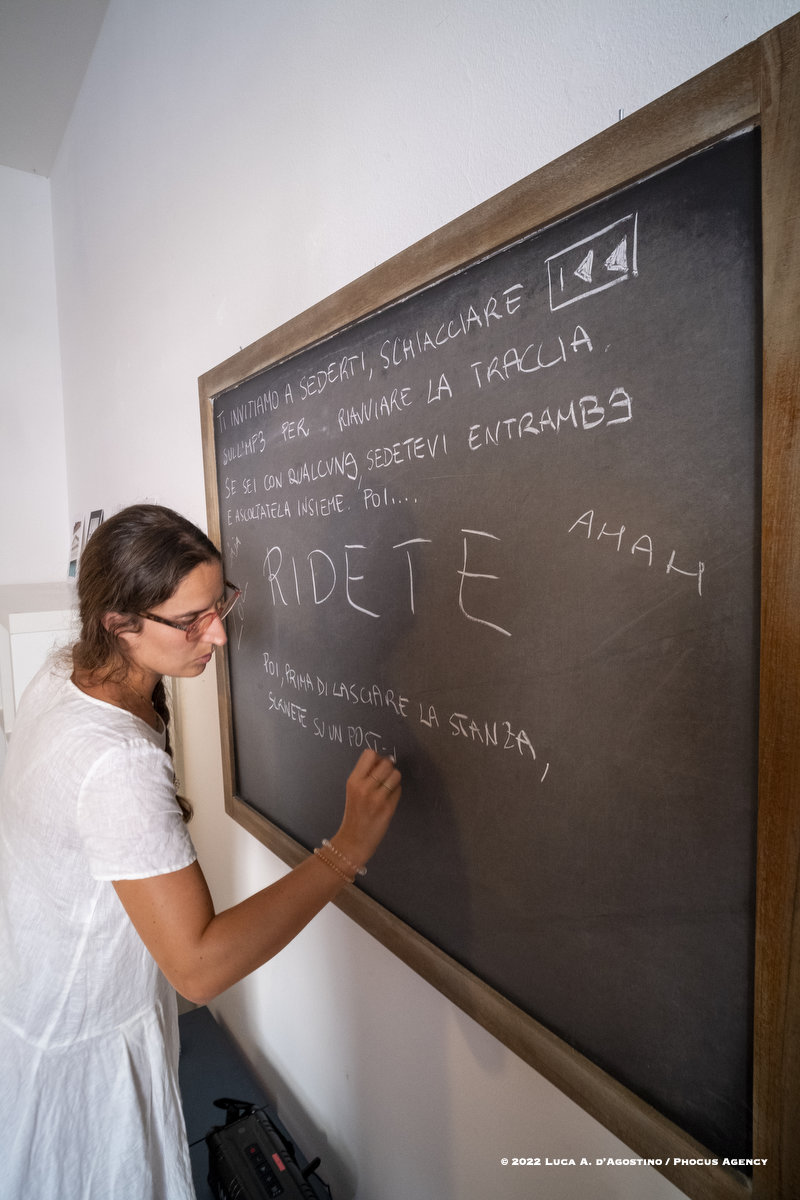 TI INVITIAMO A SEDERTI, SCHIACCIARE
SULL'MP3 PER RIAVVIARE LA TRACCIA.
SE SEI CON QUALCUNƏ, SEDETEVI ENTRAMBƏ
E ASCOLTATELA INSIEME. POI....
RIDETE
AHAH
POI, PRIMA DI LASCIARE LA STANZA,
SCRIVETE SU UN POST-I
© 2022 LUCA A. D'AGOSTINO / PHOCUS AGENCY